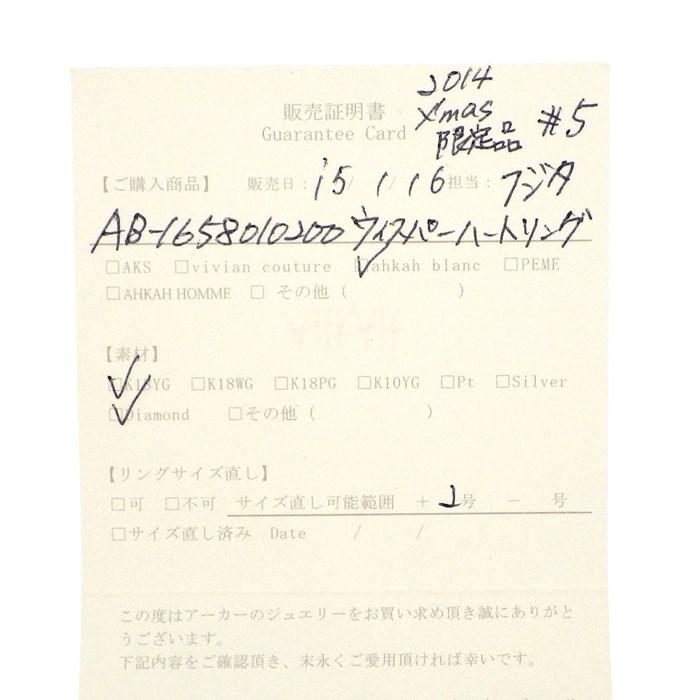 2014
X'mas
限定品 #5
販売証明書
Guarantee Card
【ご購入商品】 販売日: 15/1/16 担当: フジタ
AB-1658010200 ウィスパーハートリング
□AKS □vivian couture ☑ahkah blanc □PEME
□AHKAH HOMME □その他( )
【素材】
☑K18YG □K18WG □K18PG □K10YG □Pt □Silver
☑Diamond □その他( )
【リングサイズ直し】
□可 □不可 サイズ直し可能範囲 + 2号 - 号
□サイズ直し済み Date / /
この度はアーカーのジュエリーをお買い求め頂き誠にありがと
うございます。
下記内容をご確認頂き、末永くご愛用頂ければ幸いです。